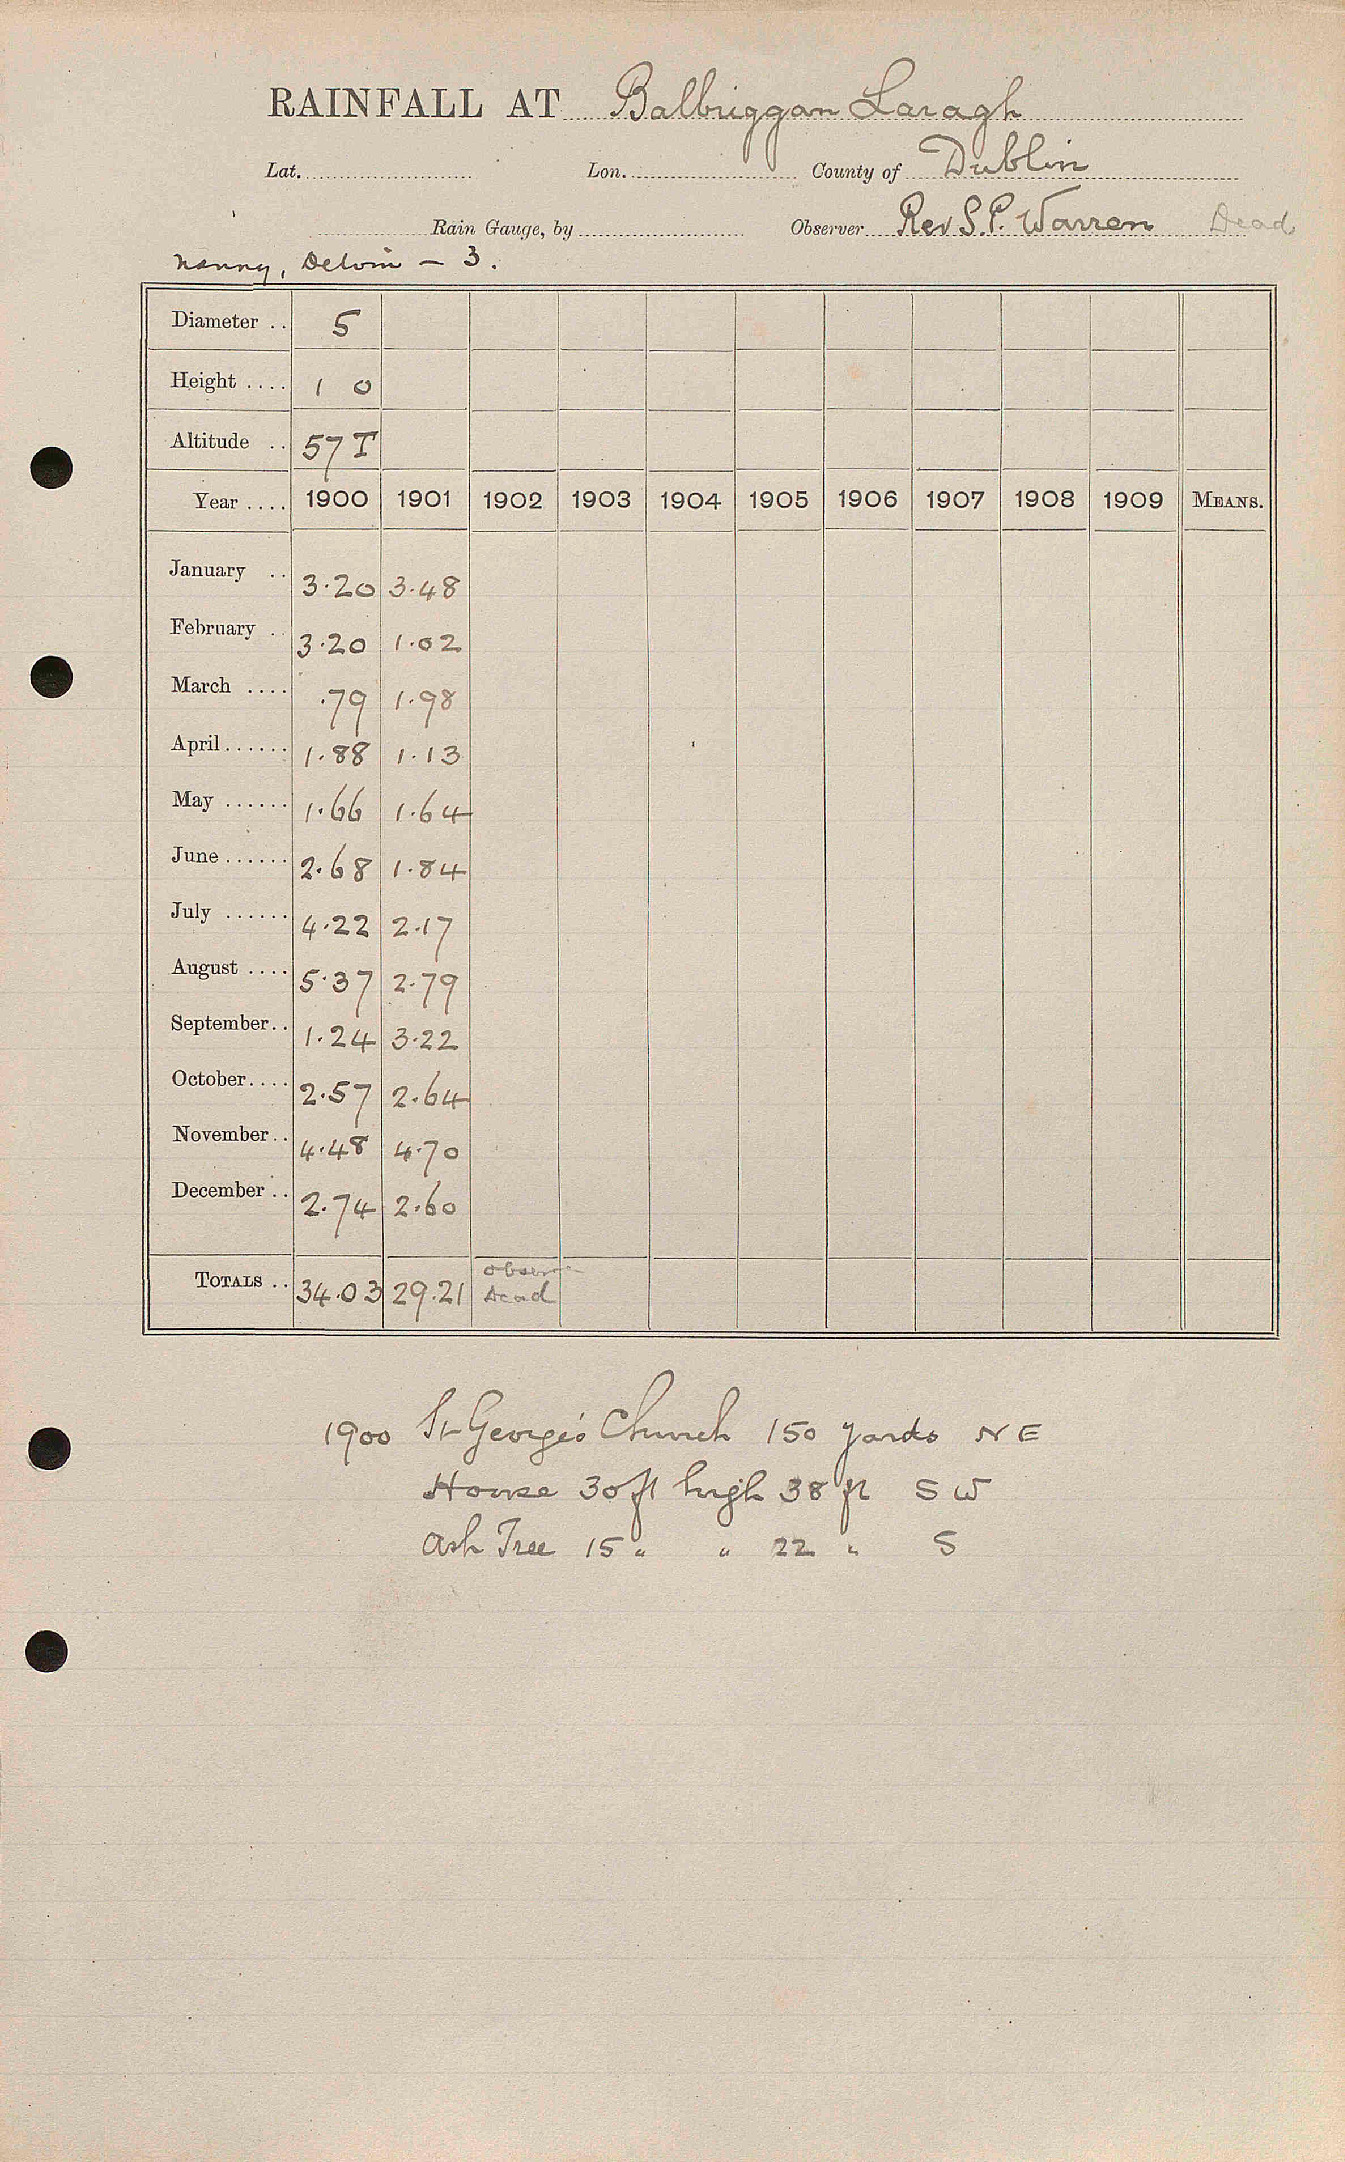 RAINFALL AT Balbriggan Laragh
Lat. Lon. County of Dublin
Rain Gauge, by Observer Rev S. P. Warren Dead
Nanny, Delvin – 3.
Diameter .. 5
Height .... 1 0
Altitude .. 57 T
Year .... 1900 1901 1902 1903 1904 1905 1906 1907 1908 1909 MEANS.
January .. 3.20 3.48
February .. 3.20 1.02
March .... .79 1.98
April ...... 1.88 1.13
May ...... 1.66 1.64
June ...... 2.68 1.84
July ...... 4.22 2.17
August .... 5.37 2.79
September.. 1.24 3.22
October.... 2.57 2.64
November.. 4.48 4.70
December .. 2.74 2.60
TOTALS .. 34.03 29.21 Dead
1900 St George's Church 150 yards NE
House 30 ft high 38 ft SW
Ash Tree 15 " " 22 " S